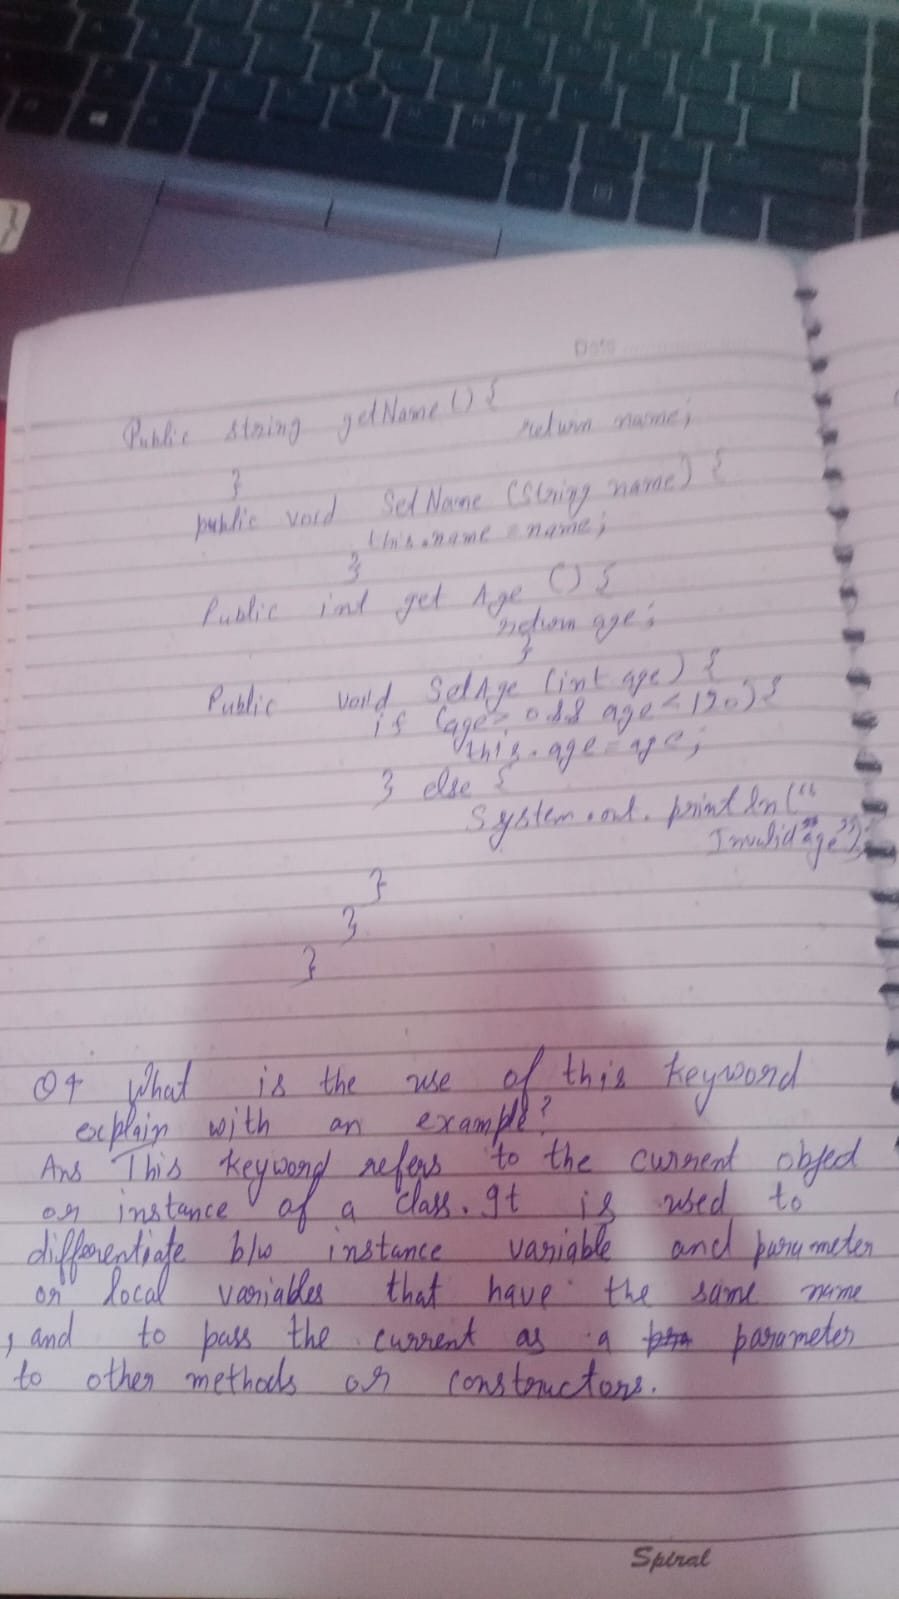 Date
Public string getName () {
return name;
}
public void SetName (String name) {
this.name = name;
}
Public int get Age () {
return age;
}
Public void SetAge (int age) {
if (age > 0 && age < 120) {
this.age = age;
} else {
System.out.println("
Invalid age");
}
}
}
Q4 What is the use of this keyword
explain with an example?
Ans This keyword refers to the current object
or instance of a class. It is used to
differentiate b/w instance variable and parameter
or local variables that have the same name
, and to pass the current as a parameter
to other methods or constructors.
Spiral